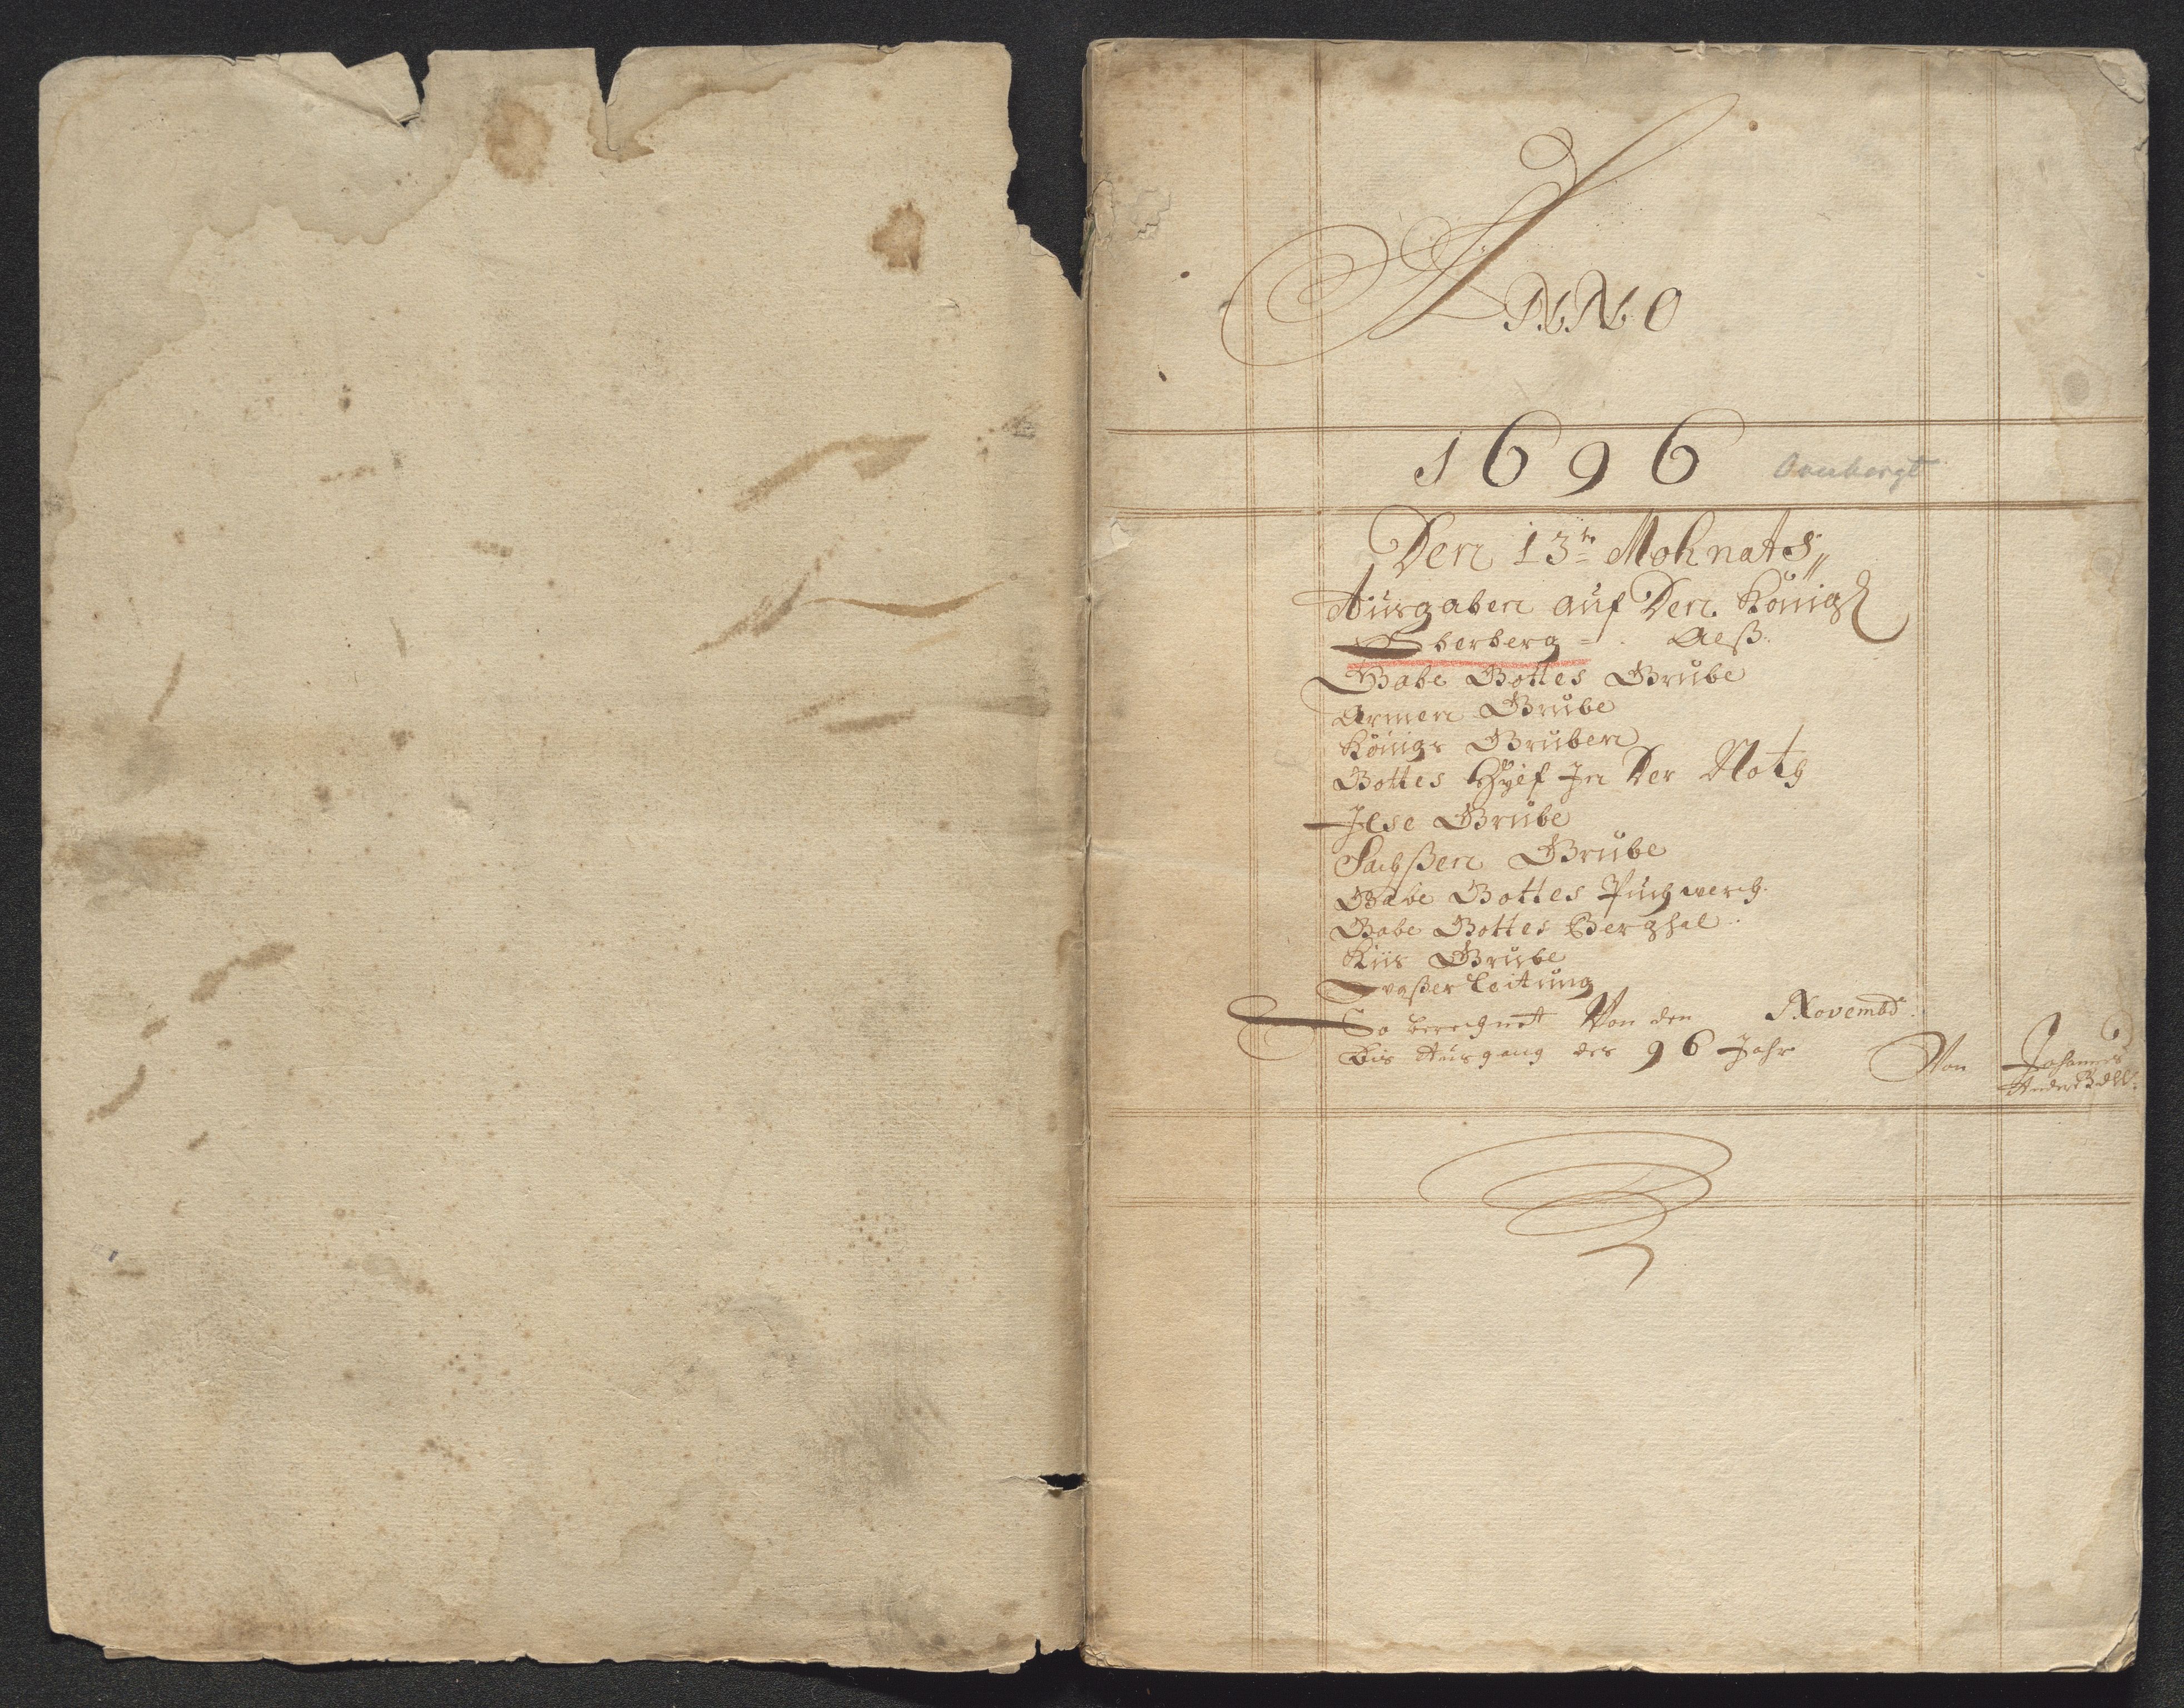 ANNO
1696
Overbergt
Den 13ten Mohnats
Ausgaben auf Den Königl
Oberberg = Alß
Gabe Gottes Grube
Armen Grube
Königs Gruben
Gottes Hylf In Der Noth
Ilse Grube
Sachßen Grube
Gabe Gottes Puchwerch.
Gabe Gottes Berghal
Kiis Grube
Waßerleitung
So berechnet Von den Novembr
Bis Ausgang des 96 Jahr
Von Johannes